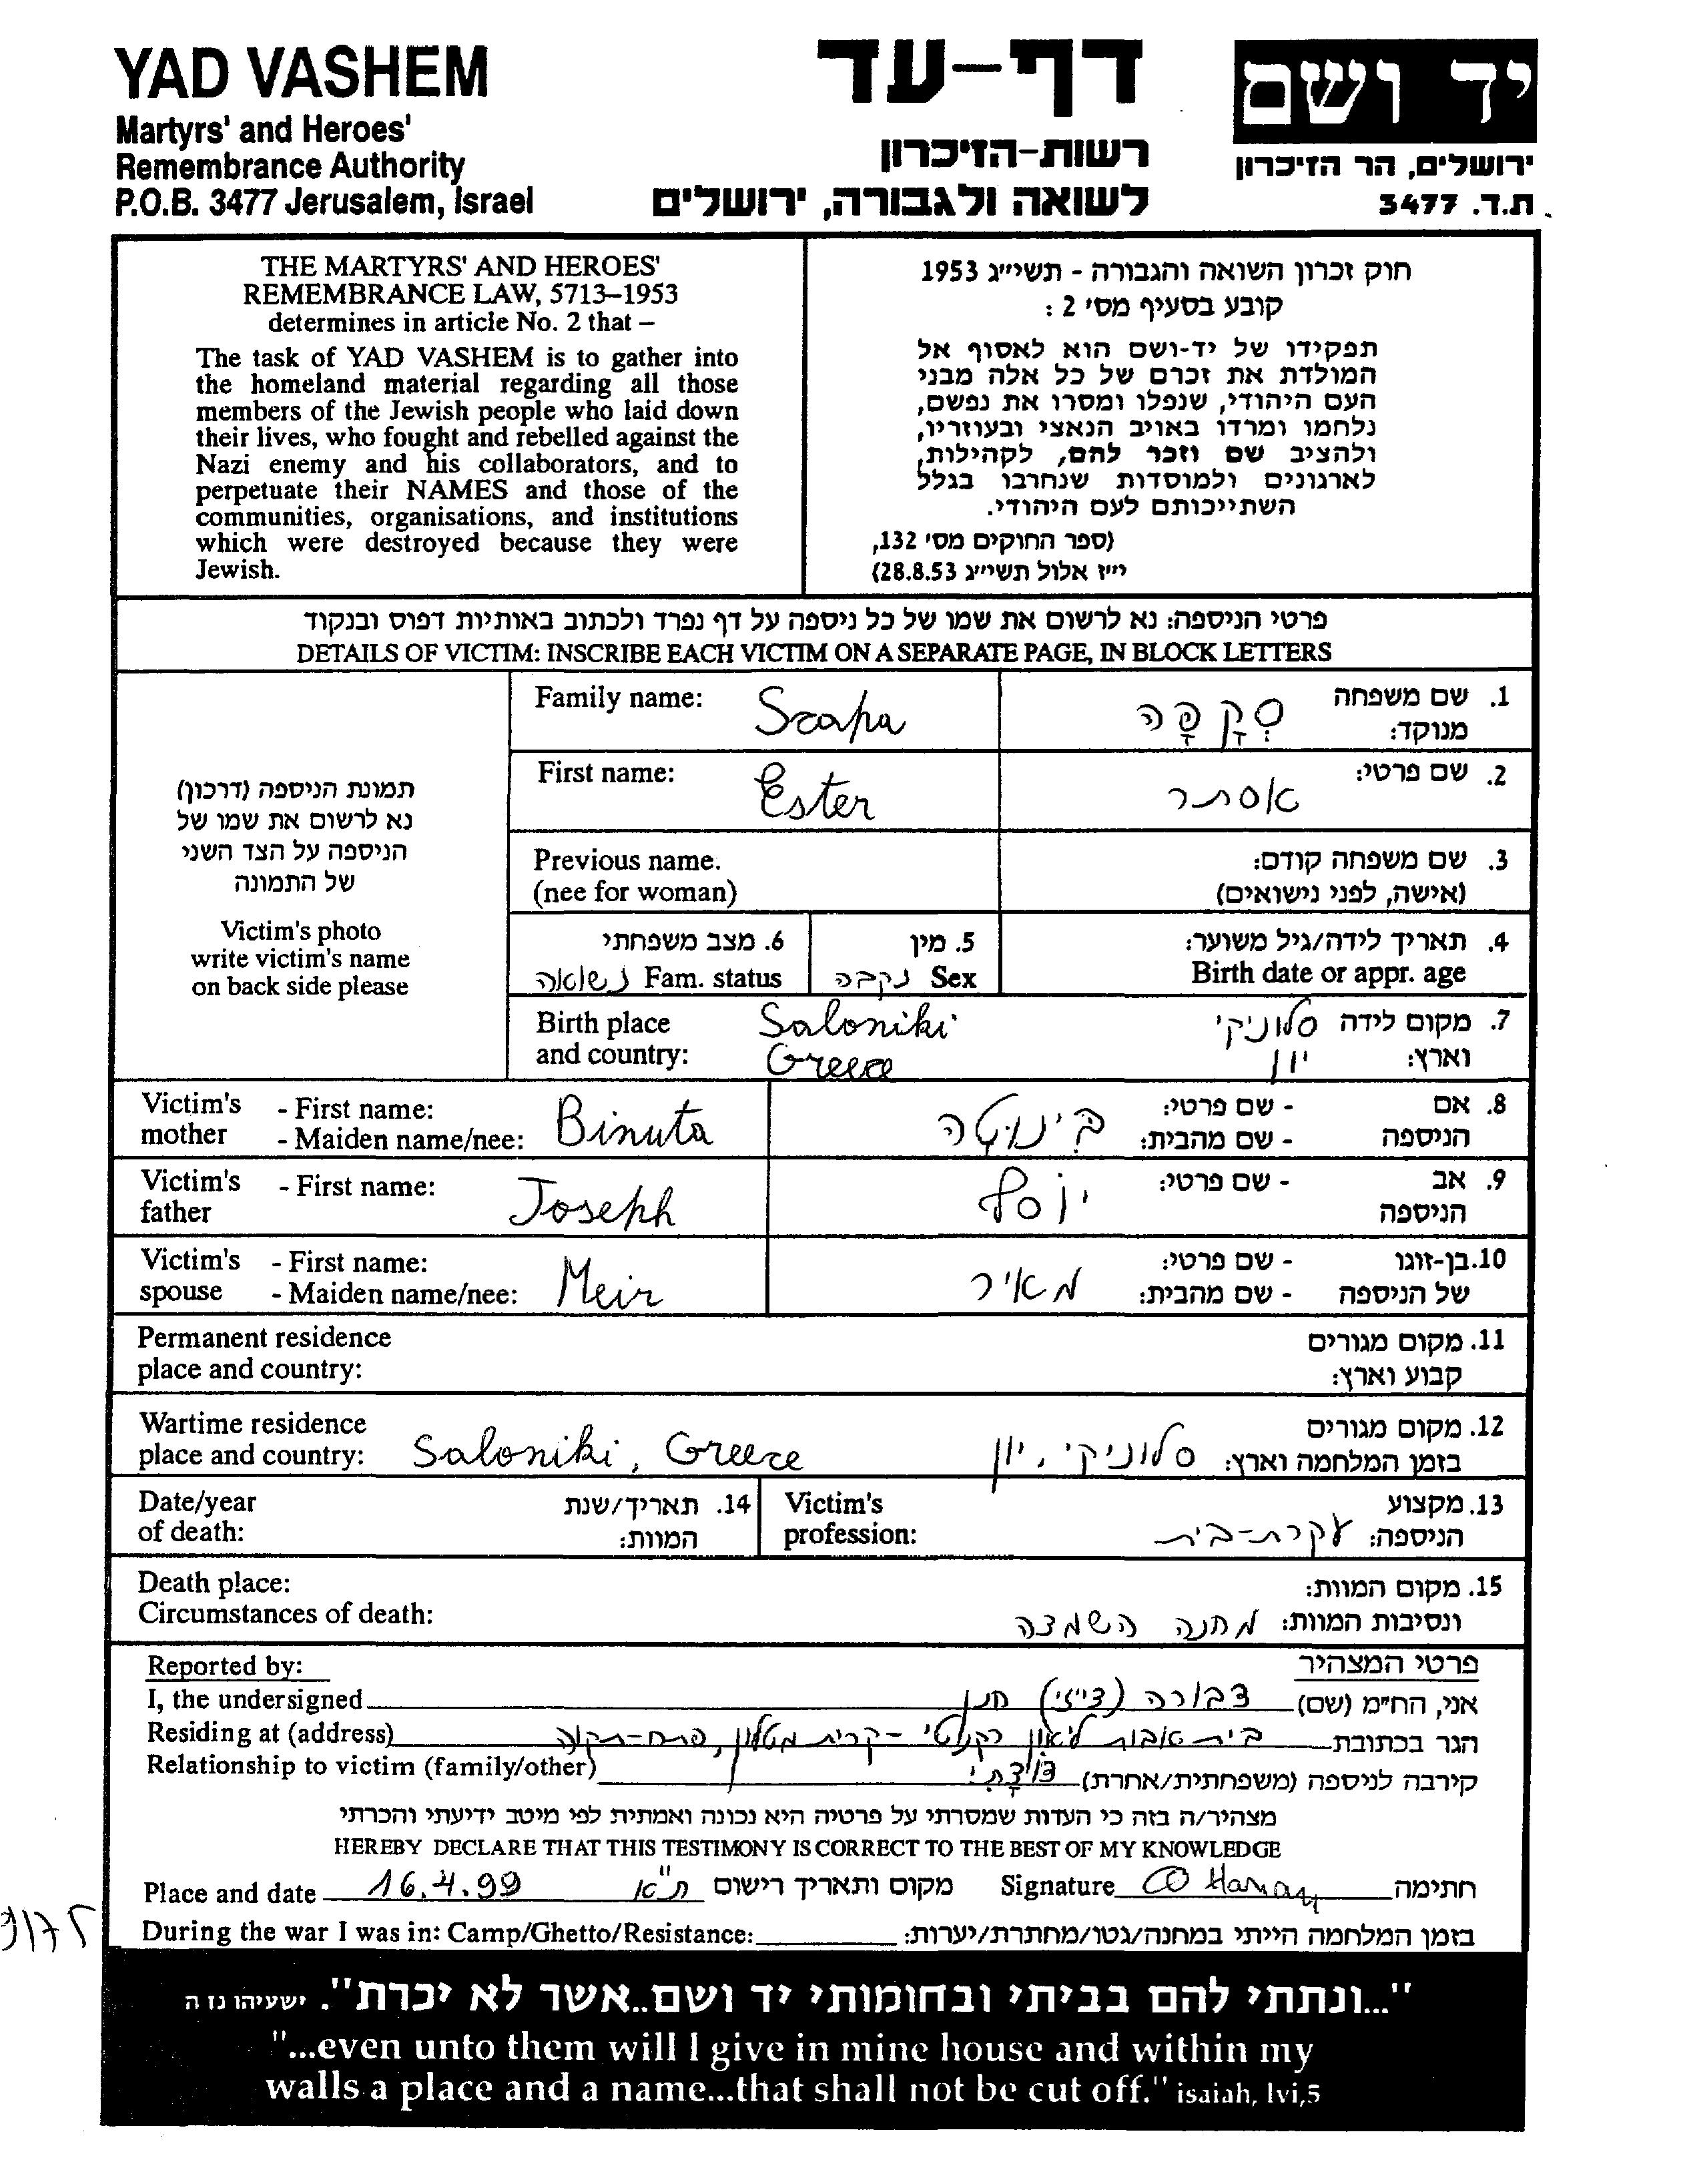 YAD VASHEM
Martyrs' and Heroes'
Remembrance Authority
P.O.B. 3477 Jerusalem, Israel
דף-עד
רשות-הזיכרון
לשואה ולגבורה, ירושלים
יד ושם
ירושלים, הר הזיכרון
ת.ד. 3477
THE MARTYRS' AND HEROES'
REMEMBRANCE LAW, 5713–1953
determines in article No. 2 that –
The task of YAD VASHEM is to gather into
the homeland material regarding all those
members of the Jewish people who laid down
their lives, who fought and rebelled against the
Nazi enemy and his collaborators, and to
perpetuate their NAMES and those of the
communities, organisations, and institutions
which were destroyed because they were
Jewish.
חוק זכרון השואה והגבורה - תשי״ג 1953
קובע בסעיף מס' 2 :
תפקידו של יד-ושם הוא לאסוף אל
המולדת את זכרם של כל אלה מבני
העם היהודי, שנפלו ומסרו את נפשם,
נלחמו ומרדו באויב הנאצי ובעוזריו,
ולהציב שם וזכר להם, לקהילות,
לארגונים ולמוסדות שנחרבו בגלל
השתייכותם לעם היהודי.
(ספר החוקים מס' 132,
י״ז אלול תשי״ג 28.8.53)
פרטי הניספה: נא לרשום את שמו של כל ניספה על דף נפרד ולכתוב באותיות דפוס ובנקוד
DETAILS OF VICTIM: INSCRIBE EACH VICTIM ON A SEPARATE PAGE, IN BLOCK LETTERS
תמונת הניספה (דרכון)
נא לרשום את שמו של
הניספה על הצד השני
של התמונה
Victim's photo
write victim's name
on back side please
Family name: Scapa
1. שם משפחה
מנוקד: סְקָפָה
First name: Ester
2. שם פרטי: אסתר
Previous name.
(nee for woman)
3. שם משפחה קודם:
(אישה, לפני נישואים)
6. מצב משפחתי
Fam. status נשואה
5. מין
Sex נקבה
4. תאריך לידה/גיל משוער:
Birth date or appr. age
Birth place Saloniki
and country: Greece
7. מקום לידה סלוניקי
וארץ: יון
Victim's - First name:
mother - Maiden name/nee: Binuta
8. אם - שם פרטי:
הניספה - שם מהבית: בינוטה
Victim's - First name: Joseph
father
9. אב - שם פרטי: יוסף
הניספה
Victim's - First name:
spouse - Maiden name/nee: Meir
10. בן-זוגו - שם פרטי:
של הניספה - שם מהבית: מאיר
Permanent residence
place and country:
11. מקום מגורים
קבוע וארץ:
Wartime residence
place and country: Saloniki, Greece
12. מקום מגורים
בזמן המלחמה וארץ: סלוניקי, יון
Date/year
of death:
14. תאריך/שנת
המוות:
Victim's
profession:
13. מקצוע
הניספה: עקרת-בית
Death place:
Circumstances of death:
15. מקום המוות:
ונסיבות המוות: מחנה השמדה
Reported by:
פרטי המצהיר
I, the undersigned
אני, הח״מ (שם) דבורה (דייזי) חנן
Residing at (address)
הגר בכתובת בית אבות ליאון רקנטי - קרית מטלון, פתח-תקוה
Relationship to victim (family/other)
קירבה לניספה (משפחתית/אחרת) דודתי
מצהיר/ה בזה כי העדות שמסרתי על פרטיה היא נכונה ואמתית לפי מיטב ידיעתי והכרתי
HEREBY DECLARE THAT THIS TESTIMONY IS CORRECT TO THE BEST OF MY KNOWLEDGE
Place and date 16.4.99 מקום ותאריך רישום ת"א
Signature Hanan חתימה
During the war I was in: Camp/Ghetto/Resistance:
בזמן המלחמה הייתי במחנה/גטו/מחתרת/יערות:
"...ונתתי להם בביתי ובחומותי יד ושם..אשר לא יכרת". ישעיהו נו ה
"...even unto them will I give in mine house and within my
walls a place and a name...that shall not be cut off." isaiah, lvi,5